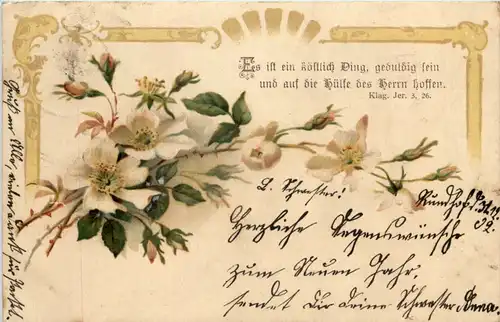 Es ist ein köstlich Ding, geduldig sein
und auf die Hülfe des Herrn hoffen.
Klag. Jer. 3, 26.
L. Schwester!
Herzliche Segenswünsche
zum Neuen Jahr,
sendet Dir deine Schwester Anna.
Gruß an